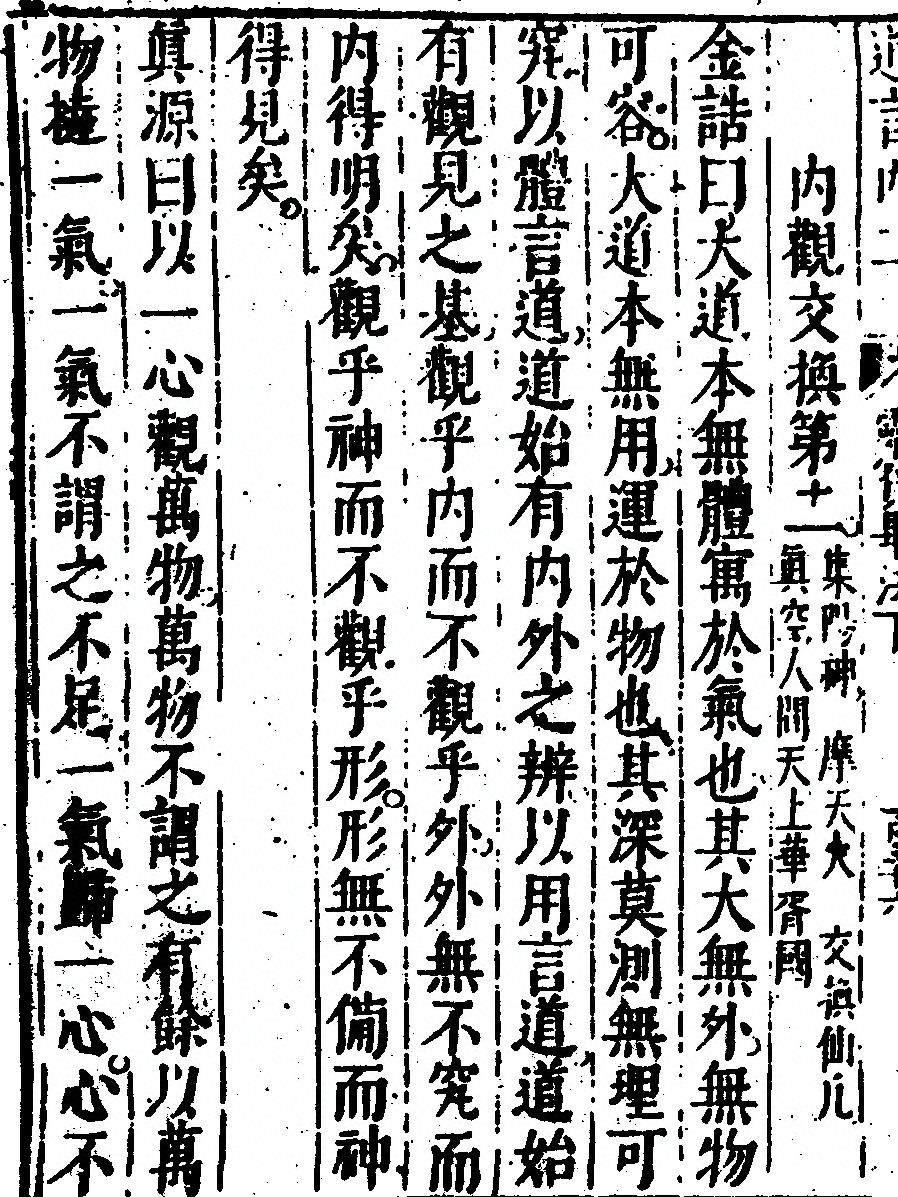 內觀交換第十一
集陽神 摩天火 交換仙凡
真空人間天上華胥國
金誥曰大道本無體寓於氣也其大無外無物
可容大道本無用運於物也其深莫測無理可
究以體言道道始有內外之辨以用言道道始
有觀見之基觀乎內而不觀乎外外無不究而
內得明矣觀乎神而不觀乎形形無不備而神
得見矣
真源曰以一心觀萬物萬物不謂之有餘以萬
物撓一氣一氣不謂之不足一氣歸一心心不